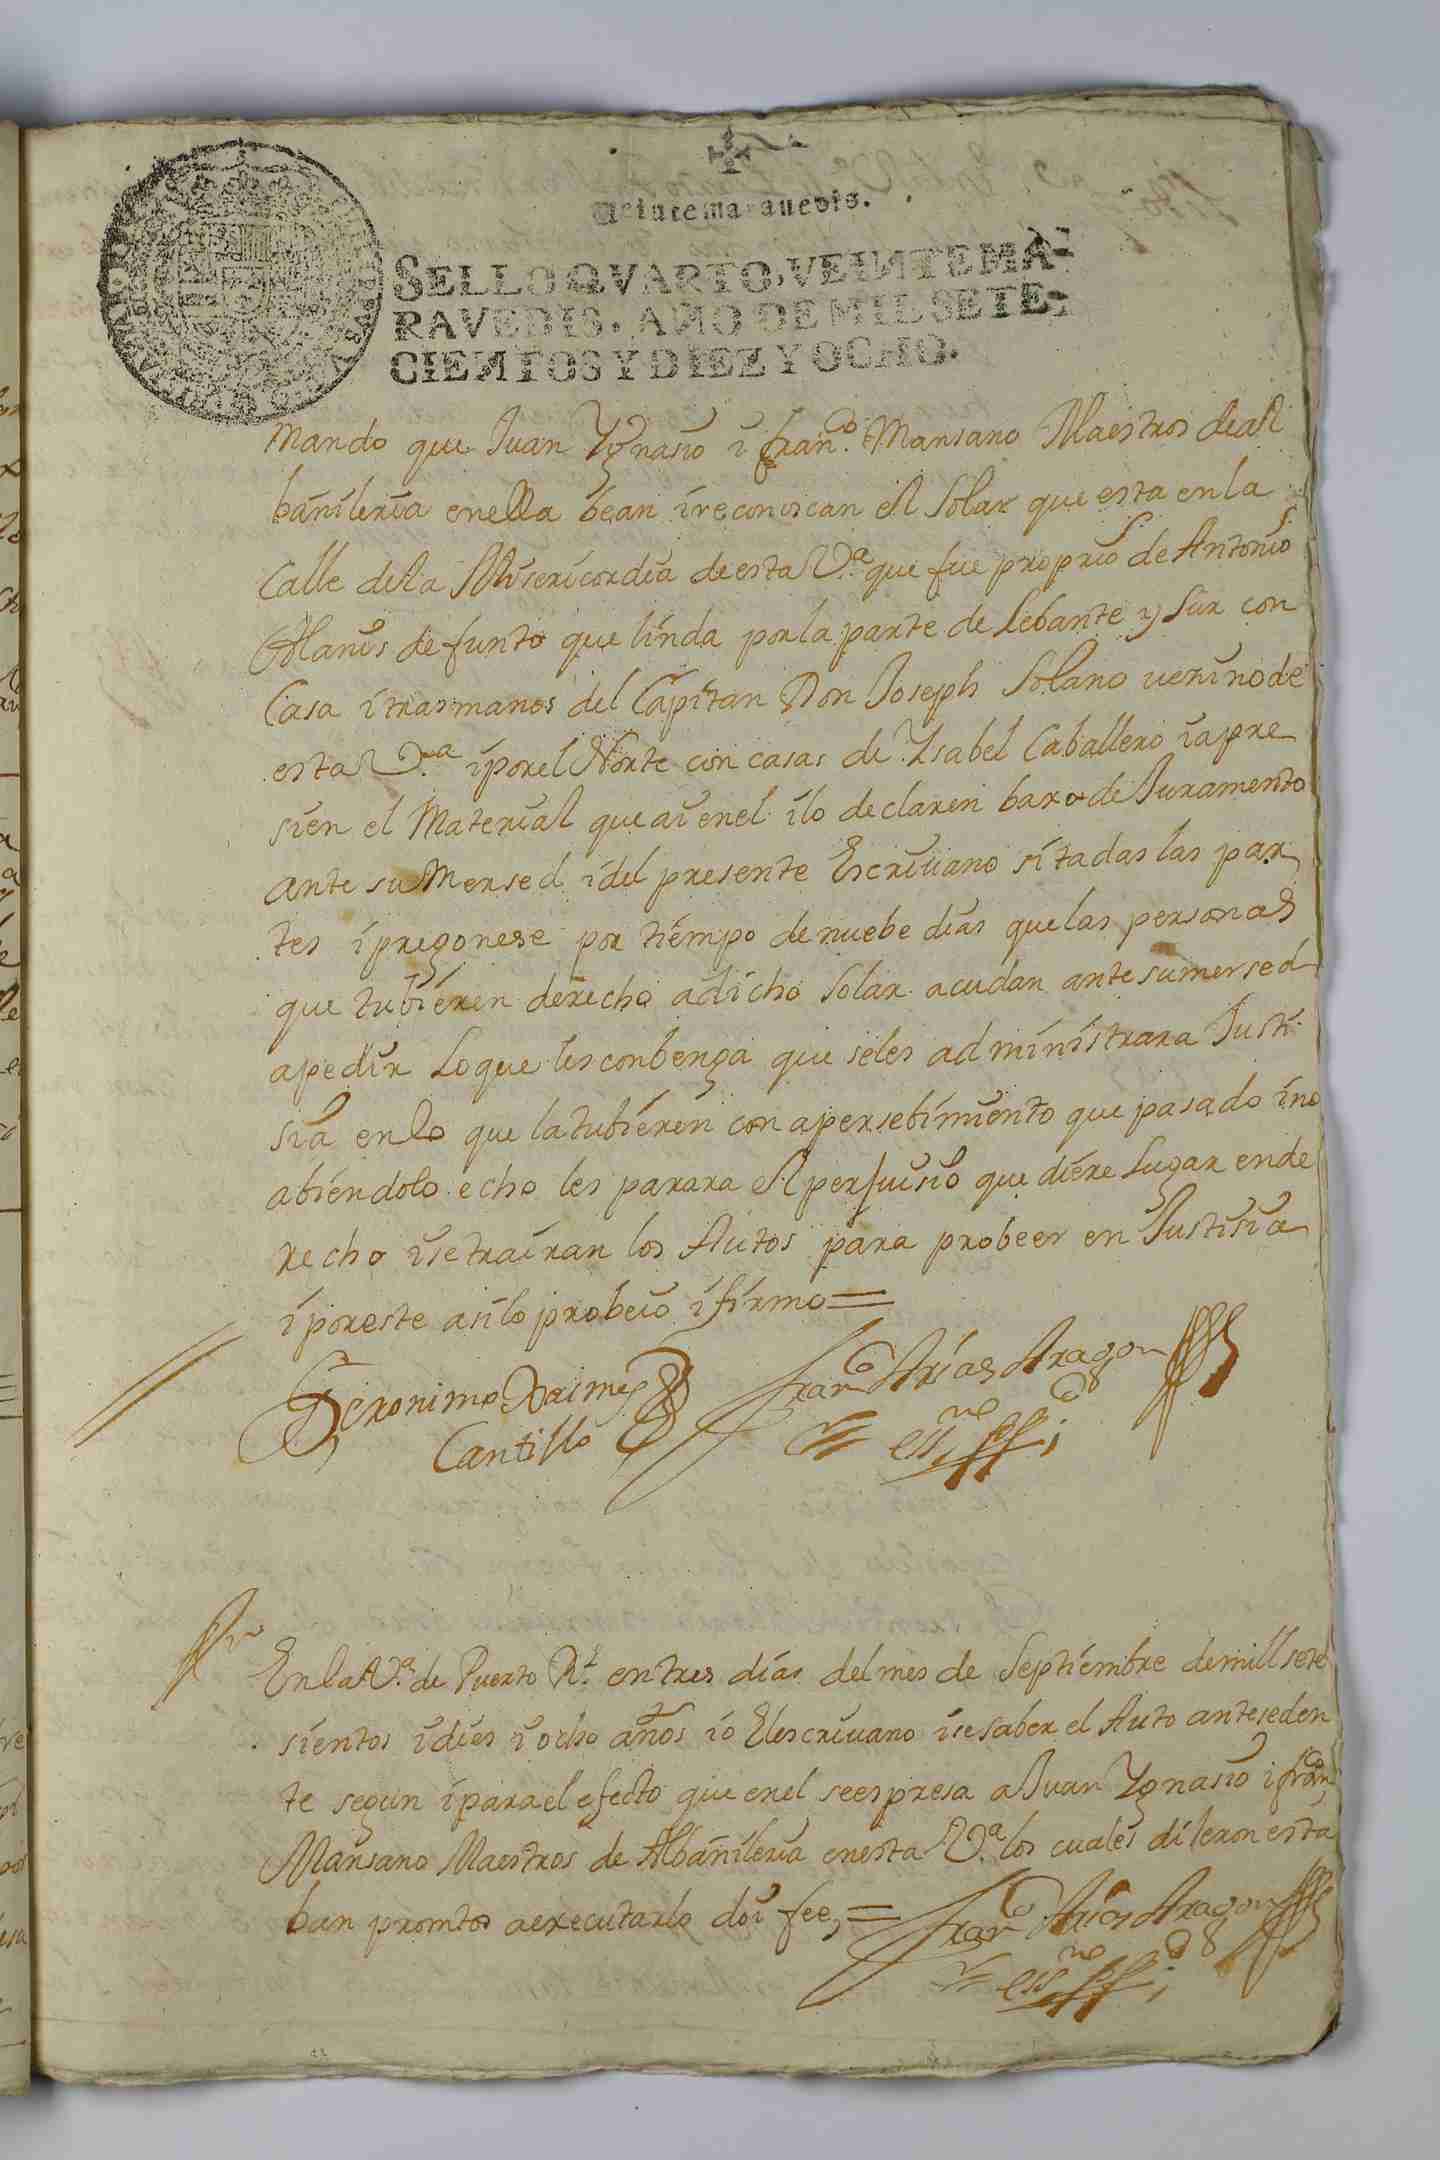 Veinte maravedis.
SELLO QVARTO, VEINTE MA-
RAVEDIS, AÑO DE MIL SETE-
CIENTOS Y DIEZ Y OCHO.
mando que Juan Ygnasio i fran.co Mansano Maestros de al
bañileria en ella bean i reconoscan el Solar que esta en la
Calle de la Misericordia de esta V.a que fue proprio de Antonio
Alanis defunto que linda por la parte de Lebante y Sur con
Casa i trasmanos del Capitan Don Joseph Solano uesino de
esta V.a i por el Norte con casas de Ysabel Caballero i apre
sien el Material que ai en el ilo declaren baxo de Juramento
ante su Mersed i del presente Escriuano sitadas las par
tes i pregonese por tiempo de nuebe dias que las personas
que tubieren derecho a dicho Solar acudan ante su mersed
a pedir Lo que les conbenga que se les administrara Justi
sia en lo que la tubieren con apersebimiento que pasado i no
abiendolo echo les parara el perjuisio que diere Lugar en de
recho i se trairan los Autos para probeer en Justisia
i por este asi lo probeio i firmo=
Geronimo Xaimes
Cantillo
fran.co Arias Aragon
ess.no
En la V.a de Puerto R.l en tres dias del mes de Septiembre de mill sete
sientos i dies i ocho años io El escriuano ise saber el Auto anteseden
te segun i para el efecto que en el se espresa a Juan Ygnasio i fran.co
Mansano Maestros de Albañileria en esta V.a los cuales dixeron esta
ban promtos a executarlo doi fee,=
fran.co Arias Aragon
ess.no